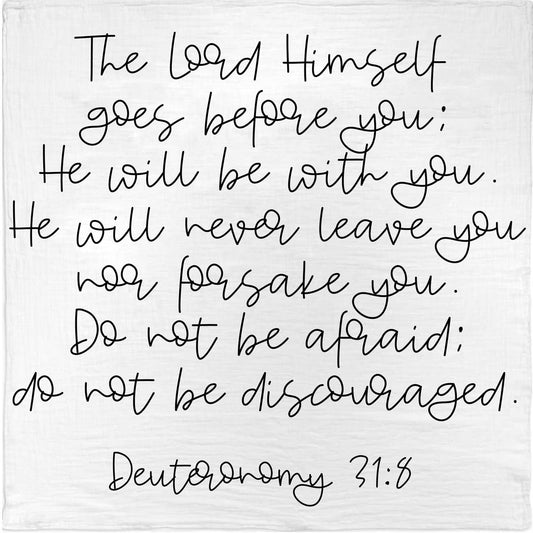 The Lord Himself
goes before you;
He will be with you.
He will never leave you
nor forsake you.
Do not be afraid;
do not be discouraged.
Deuteronomy 31:8